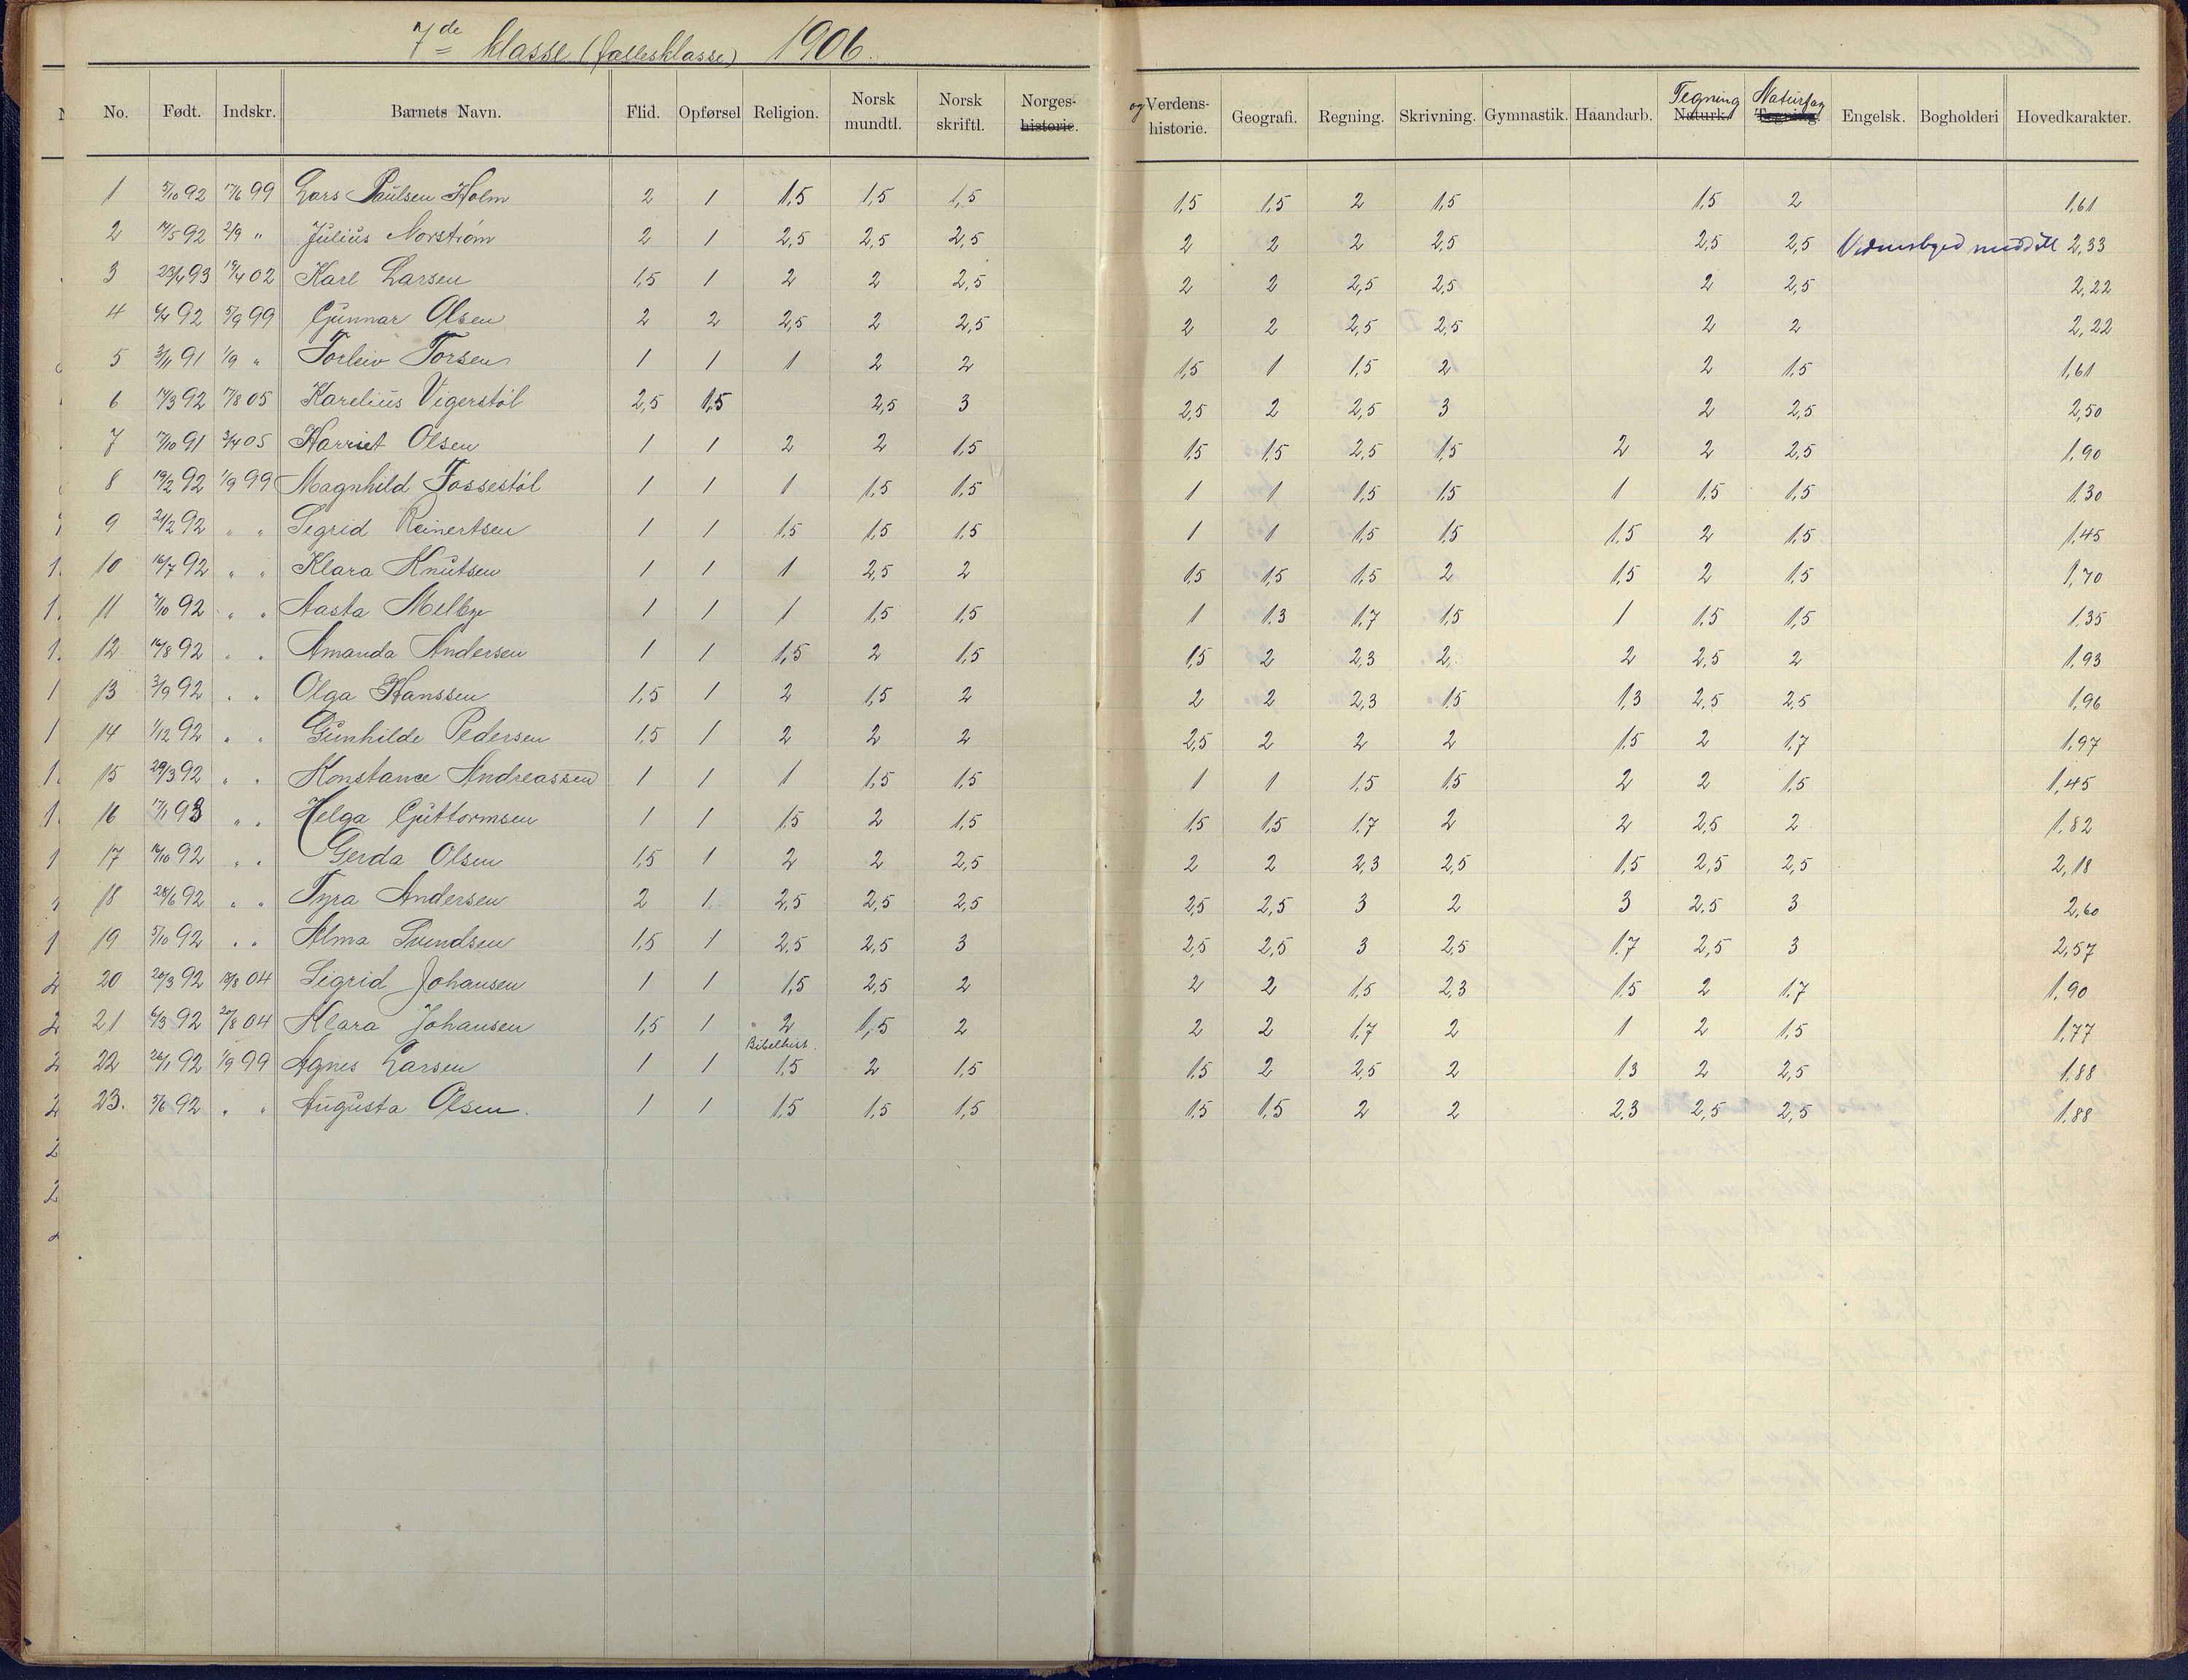 7de klasse (fællesklasse) 1906.
No. Født. Indskr. Barnets Navn. Flid. Opførsel Religion. Norsk mundtl. Norsk skriftl. Norges- historie. og Verdens- historie. Geografi. Regning. Skrivning. Gymnastik. Haandarb. Tegning Naturk. Naturfag Tegning. Engelsk. Bogholderi Hovedkarakter.
1 5/10 92 17/6 99 Lars Paulsen Holm 2 1 1,5 1,5 1,5 1,5 1,5 2 1,5 1,5 2 1,61
2 14/5 92 2/9 " Julius Norstrøm 2 1 2,5 2,5 2,5 2 2 2 2,5 2,5 2,5 2,33
3 23/4 93 19/4 02 Karl Larsen 1,5 1 2 2 2,5 2 2 2,5 2,5 2 2,5 2,22
4 6/4 92 5/9 99 Gunnar Olsen 2 2 2,5 2 2,5 2 2 2,5 2,5 2 2 2,22
5 3/11 91 1/9 " Torleiv Torsen 1 1 1 2 2 1,5 1 1,5 2 2 1,5 1,61
6 14/3 92 17/8 05 Karelius Vigerstøl 2,5 1,5 2,5 3 2,5 2 2,5 3 2 2,5 2,50
7 17/10 91 3/4 05 Harriet Olsen 1 1 2 2 1,5 1,5 1,5 2,5 1,5 2 2 2,5 1,90
8 19/2 92 1/9 99 Magnhild Fossestøl 1 1 1 1,5 1,5 1 1 1,5 1,5 1 1,5 1,5 1,30
9 21/2 92 " " Sigrid Reinertsen 1 1 1,5 1,5 1,5 1 1 1,5 1,5 1,5 2 1,5 1,45
10 16/7 92 " " Klara Knutsen 1 1 1 2,5 2 1,5 1,5 1,5 2 1,5 2 1,5 1,70
11 7/10 92 " " Aasta Melbye 1 1 1 1,5 1,5 1 1,3 1,7 1,5 1 1,5 1,5 1,35
12 16/8 92 " " Amanda Andersen 1 1 1,5 2 1,5 1,5 2 2,3 2 2 2,5 2 1,93
13 3/9 92 " " Olga Hanssen 1,5 1 2 1,5 2 2 2 2,3 1,5 1,3 2,5 2,5 1,96
14 1/12 92 " " Gunhilde Pedersen 1,5 1 2 2 2 2,5 2 2 2 1,5 2 1,7 1,97
15 29/3 92 " " Konstance Andreassen 1 1 1 1,5 1,5 1 1 1,5 1,5 2 2 1,5 1,45
16 17/1 93 " " Helga Guttormsen 1 1 1,5 2 1,5 1,5 1,5 1,7 2 2 2,5 2 1,82
17 16/10 92 " " Gerda Olsen 1,5 1 2 2 2,5 2 2 2,3 2,5 1,5 2,5 2,5 2,18
18 28/6 92 " " Tyra Andersen 2 1 2,5 2,5 2,5 2,5 2,5 3 2 3 2,5 3 2,60
19 5/10 92 " " Alma Svendsen 1,5 1 2,5 2,5 3 2,5 2,5 3 2,5 1,7 2,5 3 2,57
20 20/3 92 18/8 04 Sigrid Johansen 1 1 1,5 2,5 2 2 2 1,5 2,3 1,5 2 1,7 1,90
21 6/3 92 20/8 04 Klara Johansen 1,5 1 2 1,5 2 2 2 1,7 2 1 2 1,5 1,77
Bibelhist.
22 26/1 92 1/9 99 Agnes Larsen 1 1 1,5 2 1,5 1,5 2 2,5 2 1,3 2 2,5 1,88
23. 5/6 92 " " Augusta Olsen. 1 1 1,5 1,5 1,5 1,5 1,5 2 2 2,3 2,5 2,5 1,88